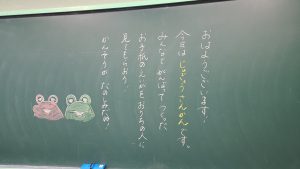 おはようございます！
今日は じゅぎょうさんかんです。
みんなで がんばって つくった
お手紙の えいがを おうちの人に
見てもらおう！
かんそうが たのしみだね！